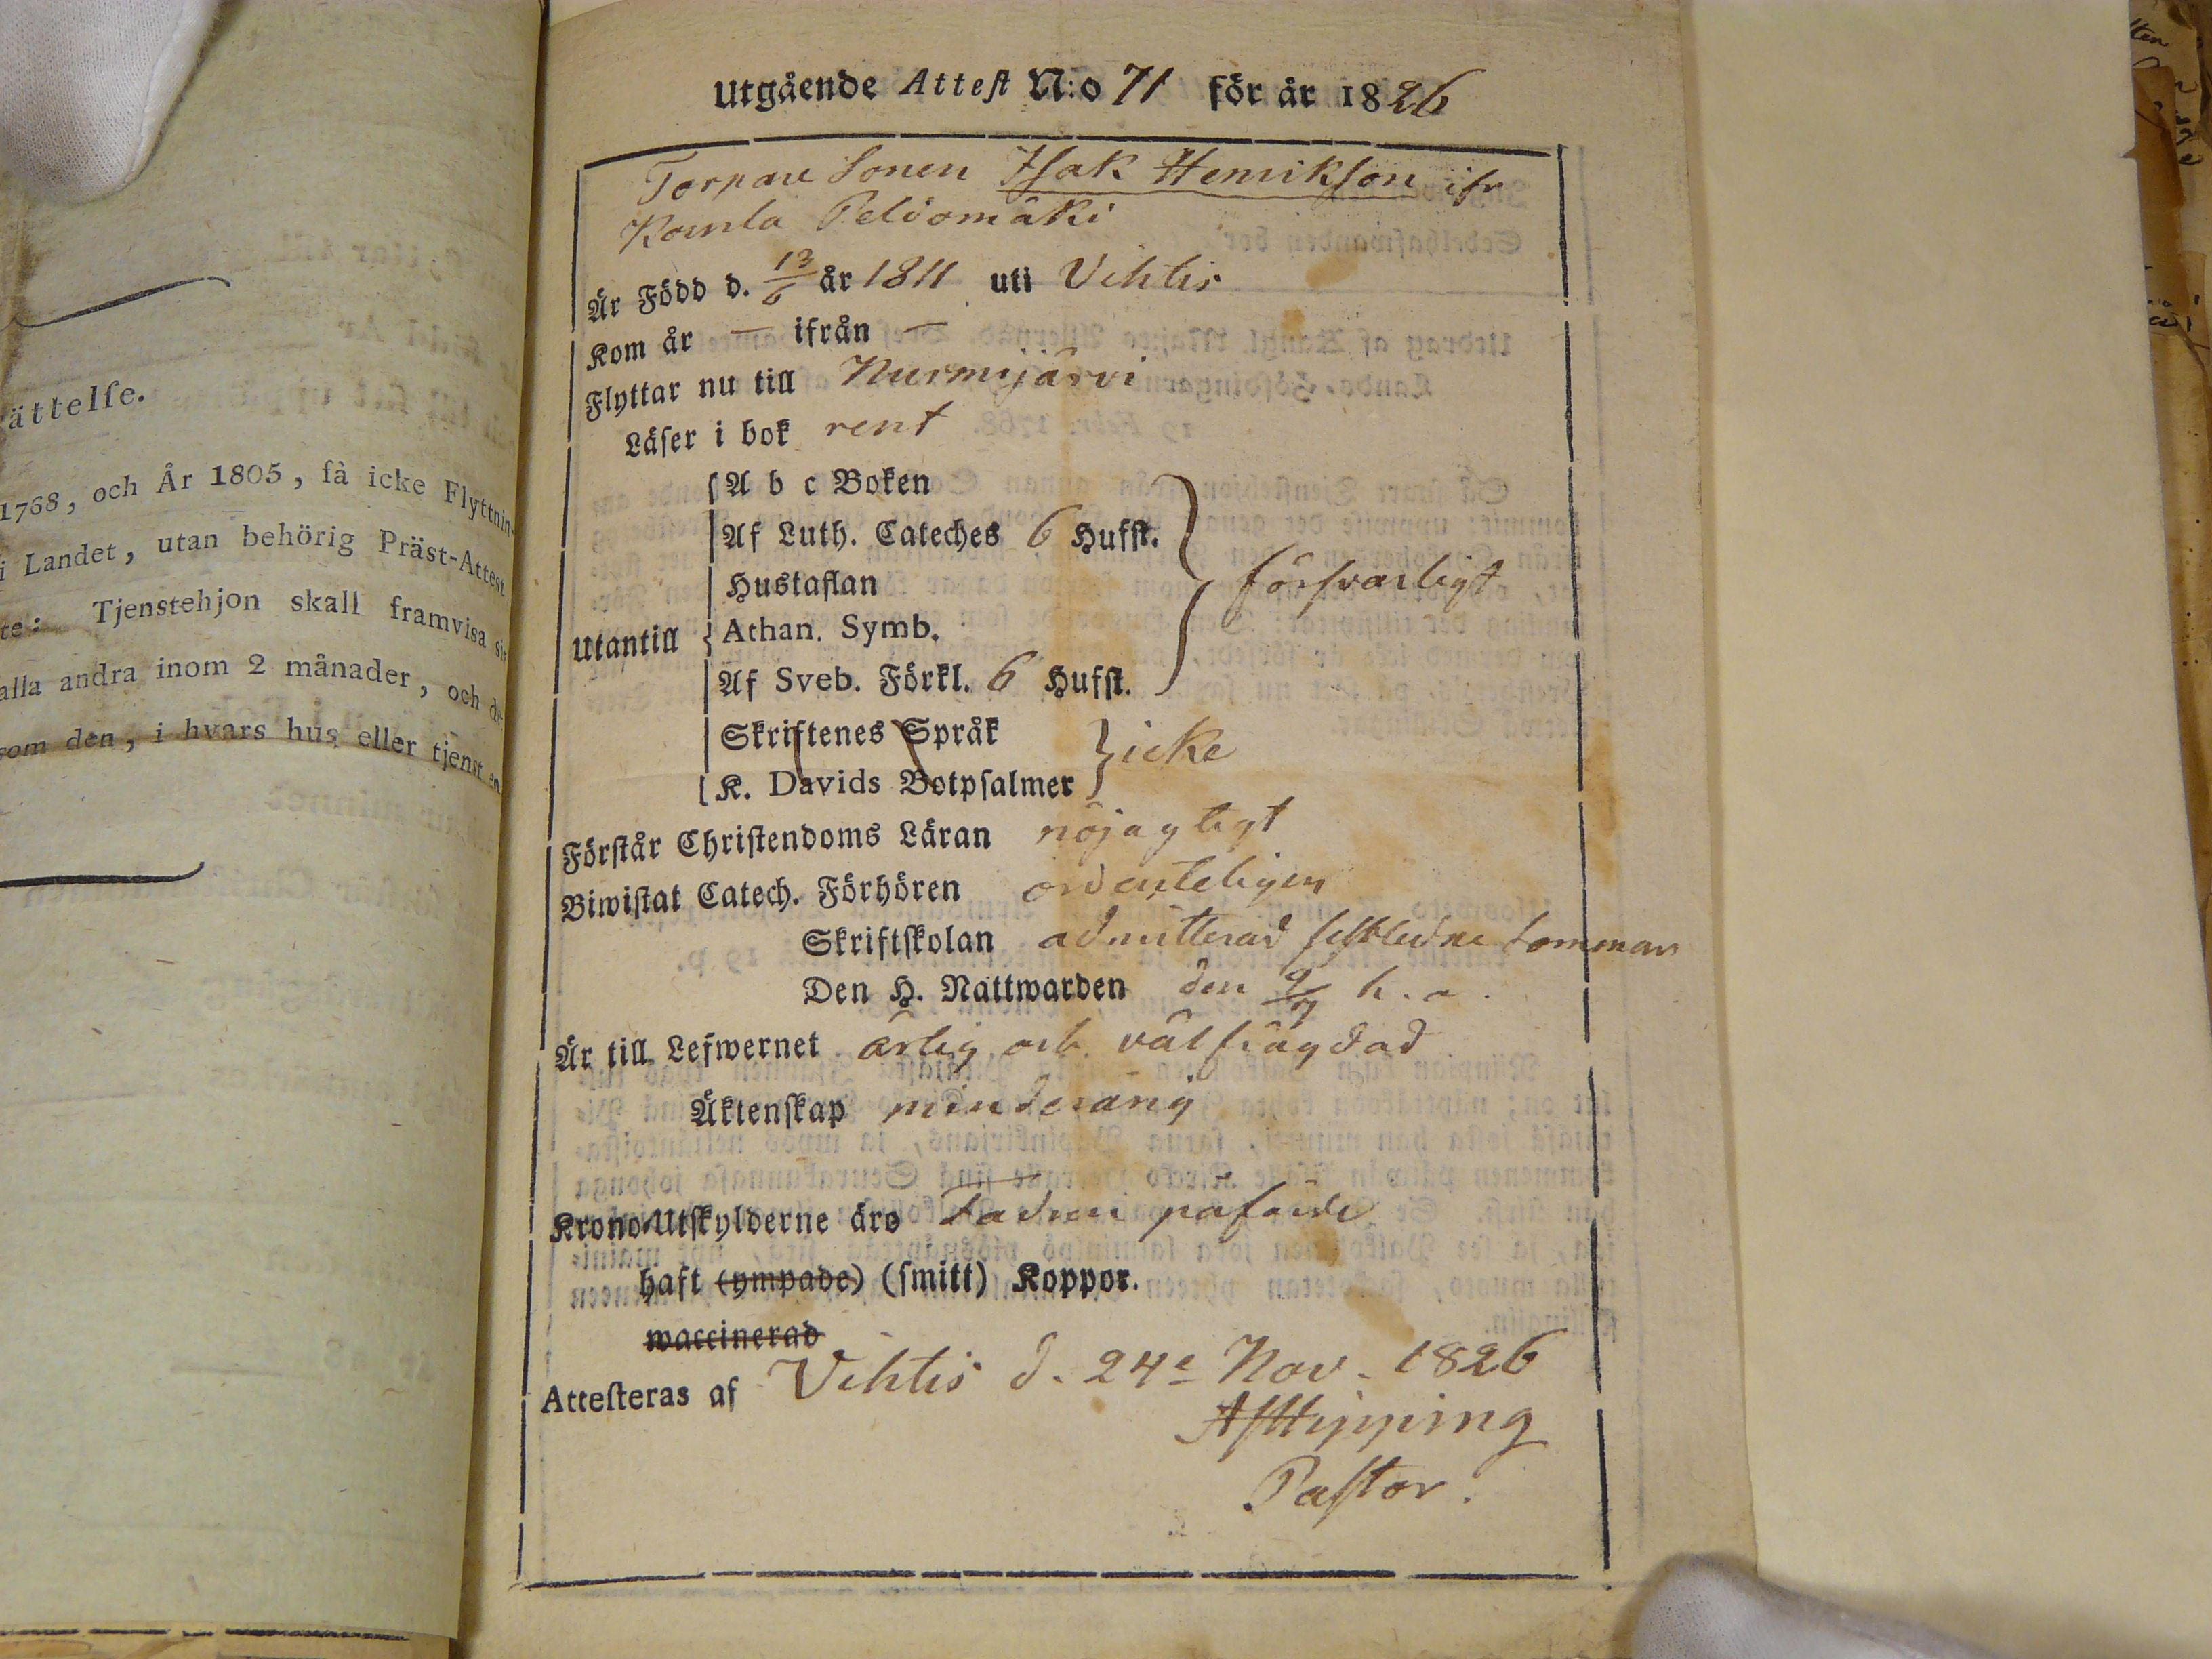 ättelse.
1768, och År 1805, få icke Flyttnin-
i Landet, utan behörig Präst-Attest
te: Tjenstehjon skall framvisa si
alla andra inom 2 månader, och de
som den, i hvars hus eller tjenst en
Utgående Attest N:o 71 för år 1826
Torpare Sonen Isak Henrikson ifr
Kourla Peldomäki
Är Född d. 13/6 år 1811 uti Vihtis
Kom år — ifrån —
Flyttar nu till Nurmijärvi
Läser i bok rent
A b c Boken
Af Luth. Cateches 6 Hufst.
Hustaflan försvarligt
Utantill Athan. Symb.
Af Sveb. Förkl. 6 Hufst.
Skriftenes Språk
K. Davids Botpsalmer icke
Förstår Christendoms Läran nöjagtigt
Biwistat Catech. Förhören ordenteligen
Skriftskolan admitterad sistledne sommar
Den H. Nattwarden den 9/7 h. a.
Är till Lefwernet ärlig och välfrägdad
Äktenskap minderårig
Krono-Utskylderne äro Fadren påförde
haft (ympade) (smitt) Koppor.
waccinerad
Attesteras af Vihtis d. 24e Nov. 1826
AJHipping
Pastor.